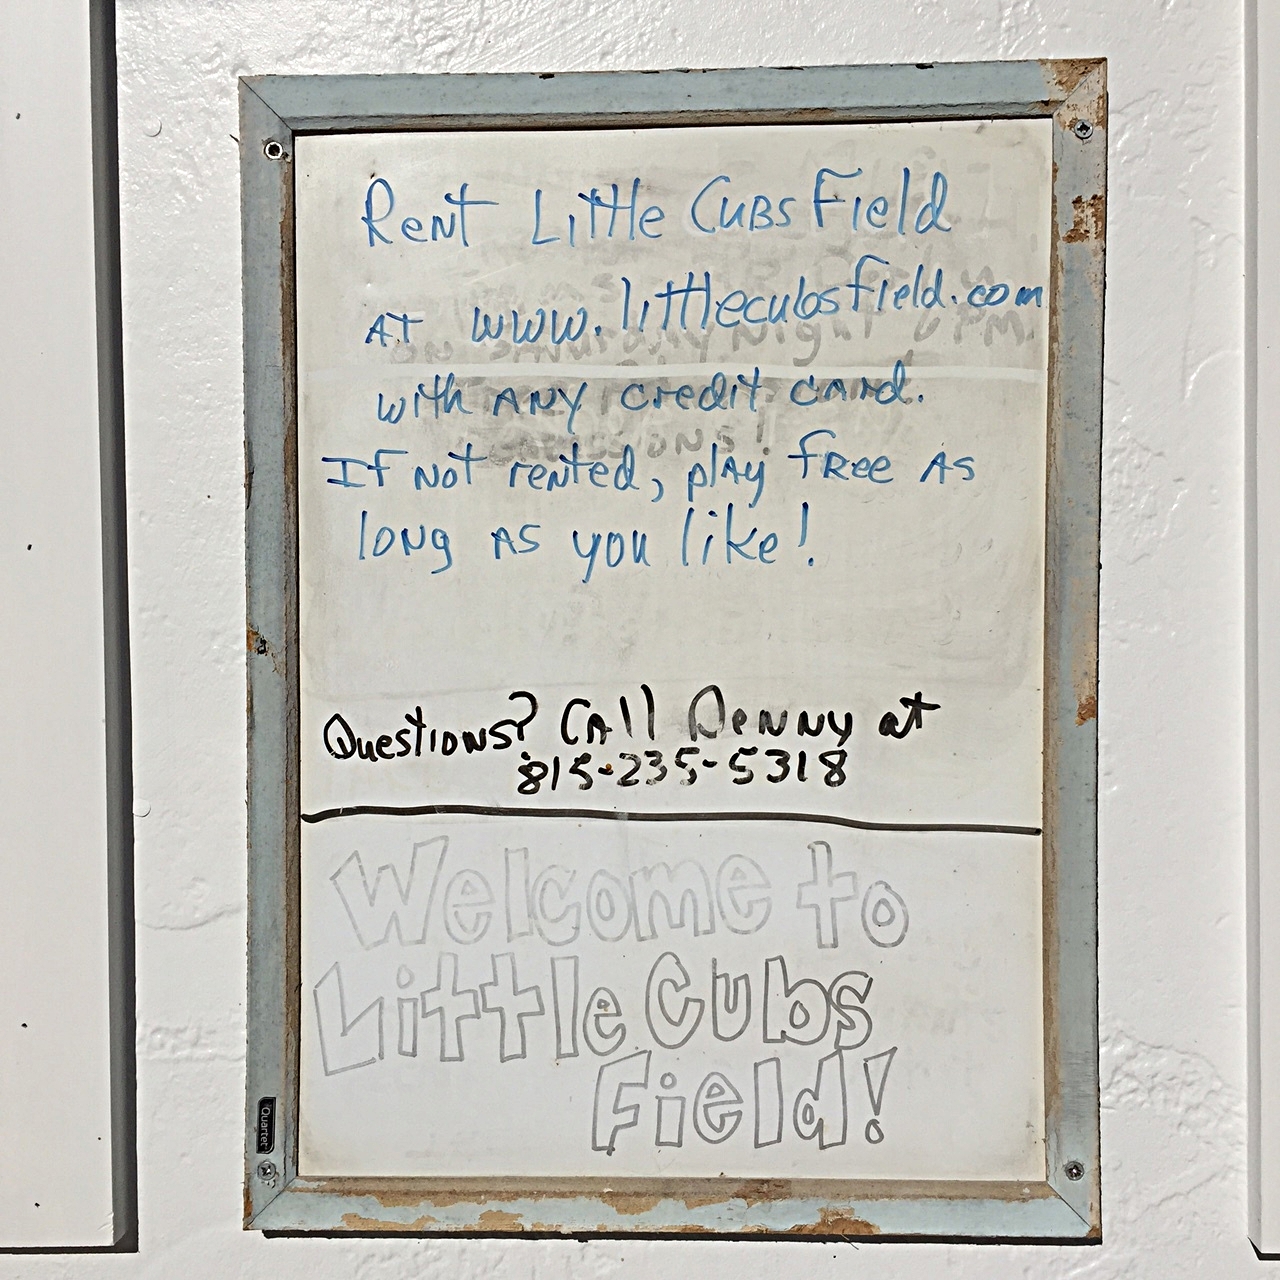 Rent Little Cubs Field
at www.littlecubsfield.com
with ANY credit card.
If not rented, play free as
long as you like!
ON Saturday Night 6PM
Questions? Call Denny at
815-235-5318
Welcome to
Little Cubs
Field!
Quartet